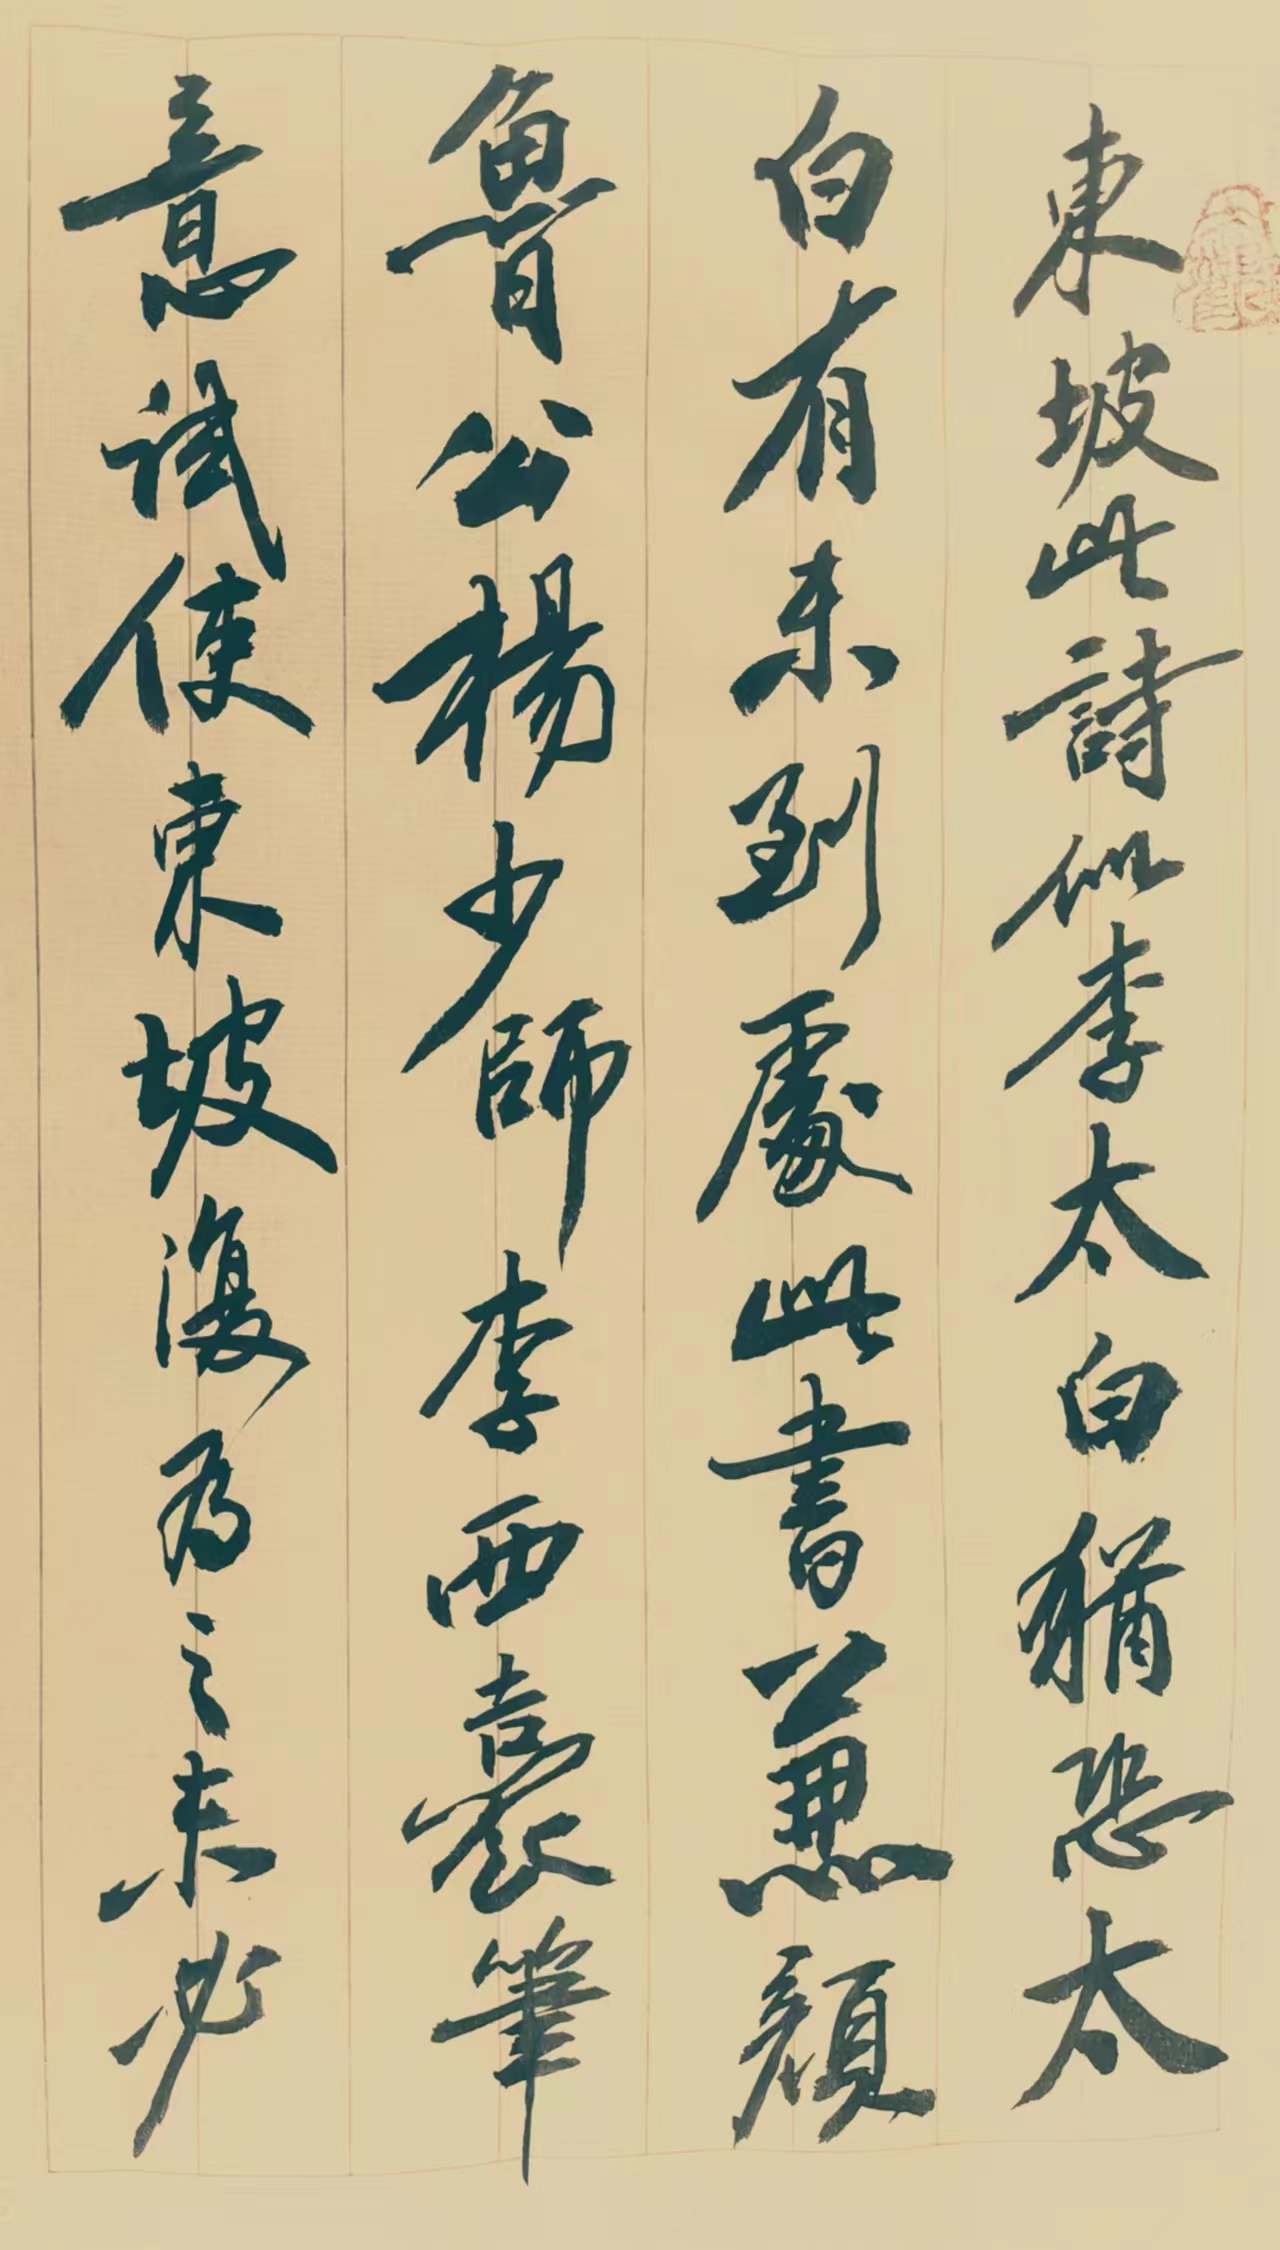 東坡此詩似李太白猶恐太
白有未到處此書兼顏
魯公楊少師李西臺筆
意試使東坡復為之未必